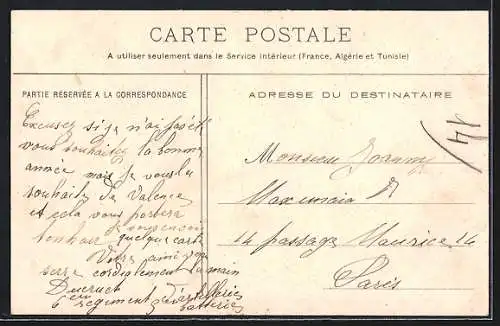 CARTE POSTALE
A utiliser seulement dans le Service intérieur (France, Algérie et Tunisie)
PARTIE RÉSERVÉE A LA CORRESPONDANCE
Excusez si je n'ai pas été
vous souhaiter la bonne
année mais je vous la
souhaite de Valence
et cela vous portera
bonheur je vous envoi
quelque carte
Votre ami qui
serre cordiplement la main
Ducruet
6em regiment d'artilleries
batteries
ADRESSE DU DESTINATAIRE
14
Monsieur Joanny
Maximin
14 passage Maurice 14
Paris